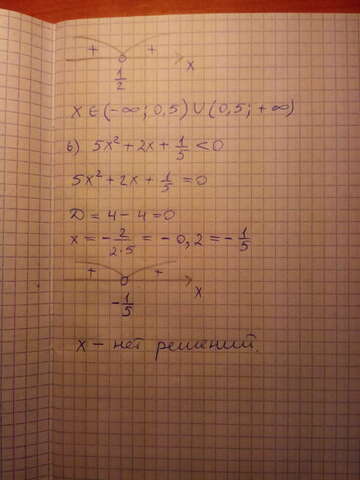 + +
1/2
x
x ∈ (-∞; 0,5) ∪ (0,5; +∞)
б) 5x² + 2x + 1/5 < 0
5x² + 2x + 1/5 = 0
D = 4 - 4 = 0
x = -2/(2·5) = -0,2 = -1/5
+ +
-1/5
x
x - нет решений.